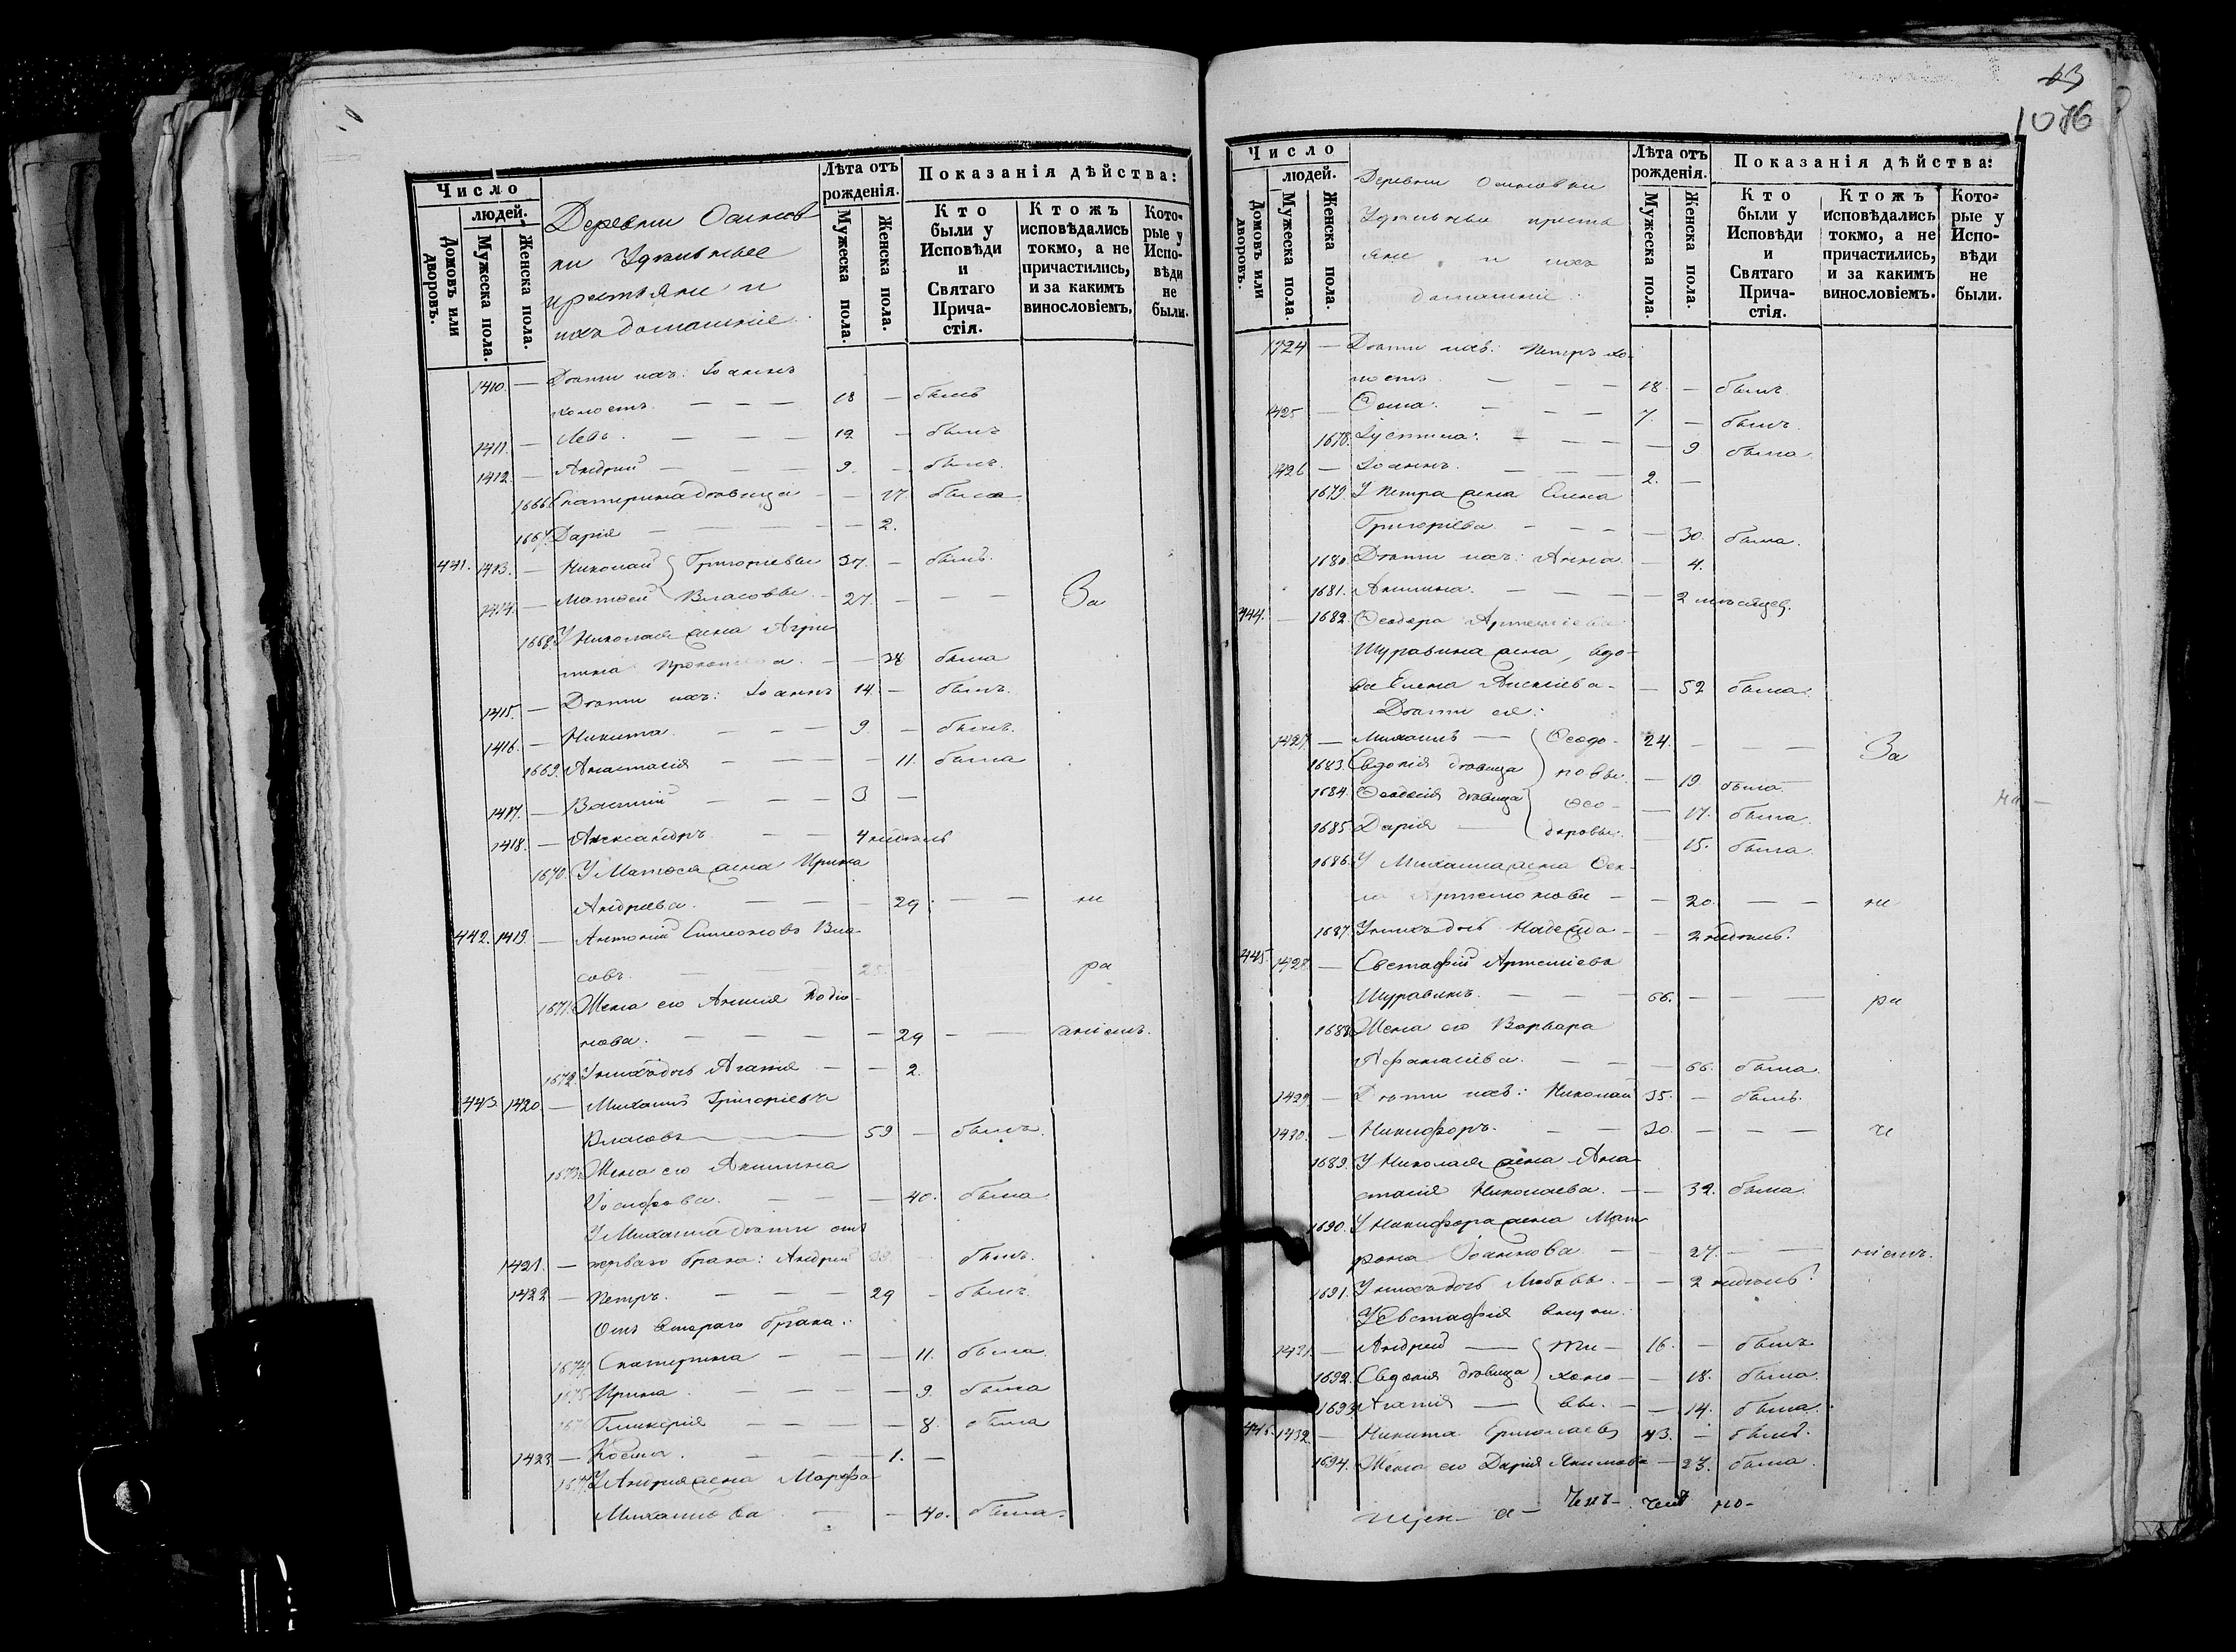 Число
людей.
Домовъ или дворовъ.
Мужеска пола.
Женска пола.
Деревни Осинов-
ки Удѣльные
крестьяне и
ихъ домашніе.
Лѣта отъ рожденія.
Мужеска пола.
Женска пола.
Показанія дѣйства:
Кто были у Исповѣди и Святаго Причастія.
Ктожъ исповѣдались токмо, а не причастились, и за какимъ винословіемъ.
Которые у Исповѣди не были.
1410. — Дѣти ихъ: Іоаннъ
холостъ — — — 18 — былъ
1411. — Левъ. — — — 12 — былъ
1412. — Андрей — — — 9. — былъ.
1666. Екатерина дѣвица — — 17 была
1667. Дарія — — — — 2.
441. 1413. — Николай } Григорьевы 37. — былъ.
1414. — Матѳей } Власовы. — 27. — — — За
1668. У Николая жена Агри-
пина — — 38 была
1415. — Дѣти ихъ: Іоаннъ 14. — былъ.
1416. — Никита. — — — 9. — былъ.
1669. Анастасія — — — — 11. была
1417. — Василій — — — 3 —
1418. — Александръ. — — 4 недѣль
1670. У Матѳея жена Ирина
Андреева. — — — 29. — — не
442. 1419. — Антоній Симеоновъ Вла-
совъ. — 25. ра
1671. Жена его Анисія Родіо-
нова. — — — — 29 — — ченіемъ.
1672. У нихъ дочь Агаѳія — — 2.
443. 1420. — Михаилъ Григорьевъ
Власовъ — 59 — былъ.
1673. Жена его Акилина
Іосифова. — — — 40. была
У Михаила дѣти отъ
1421. — перваго брака: Андрей — былъ.
1422 — Петръ. — — — 29 — былъ.
Отъ втораго брака:
1674. Екатерина — — — 11. была.
1675 Ирина. — — — — 9. была
1676 Гликерія — — — — 8. была
1423 — Косма. — — — 1. —
1677. У Андрея жена Марѳа
Михаилова — — 40. была.
1076
Число
людей.
Домовъ или дворовъ.
Мужеска пола.
Женска пола.
Деревни Осиновки
Удѣльные кресть-
яне и ихъ
домашніе:
Лѣта отъ рожденія.
Мужеска пола.
Женска пола.
Показанія дѣйства:
Кто были у Исповѣди и Святаго Причастія.
Ктожъ исповѣдались токмо, а не причастились, и за какимъ винословіемъ.
Которые у Исповѣди не были.
1424 — Дѣти ихъ: Петръ хо-
лостъ. — — — 18. — былъ.
1425 — Ѳома. — — — 7. — былъ.
1678. Іустина: — — — — 9 была.
1426 — Іоаннъ. — — — 2. —
1679. У Петра жена Елена
Григоріева. — — — — 30. была.
1680. Дѣти ихъ: Анна. — 4.
1681. Акилина. — — — — 2 мѣсяцев.
444. — 1682. Ѳеодора Артеміева
Журавина жена, вдо-
ва Елена Алексіева — — 52 была.
Дѣти ея:
1427. — Михаилъ — { Ѳеодо- 24. — — — За
1683. Евдокія дѣвица } ровы. — 19. была.
1684. Ѳеодосія дѣвица } Ѳео- — 17. была.
1685. Дарія — { доровы. — 15. была.
1686. У Михаила жена Ѳек-
ла Артемонова — — 20. — — не
1687. У нихъ дочь Надежда — — 2 недѣль.
445. 1428. — Евстафій Артеміевъ
Журавинъ. — — — 66. — — — ра
1688. Жена его Варвара
Афанасіева. — — — 66. была.
1429. — Дѣти ихъ: Николай 35. — былъ.
1430. — Никифоръ. — — 30. — — — че
1689. У Николая жена Ана-
стасія Николаева. — — 32. была.
1690. У Никифора жена Мат-
рона Іоаннова. — — 27. — — ніемъ.
1691. У нихъ дочь Любовь. — — 2 недѣль.
У Евстафія внуки:
1431. — Андрей — { Ти- 16. — былъ
1692. Евдокія дѣвица } хоно- — 18. была.
1693. Агаѳія — { вы. — — 14. была.
446. 1432. — Никита — былъ.
1694. Жена его Дарія Якимова — 23. была.